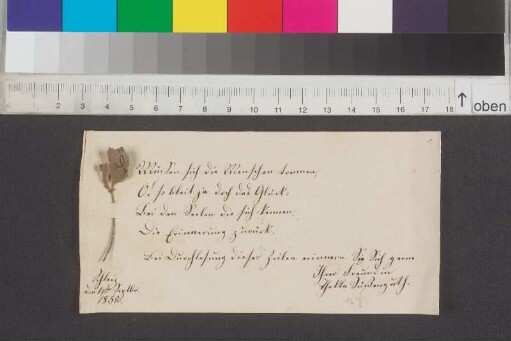 2 3 4 5 6 7 8 9 10 11 12 13 14 15 16 17 18
oben
Müssen sich die Menschen trennen,
O! so bleibt ja doch das Glück:
Bei den Seelen die sich kennen
Die Erinnerung zurück.
Bei Durchlesung dieser Zeilen erinnern Sie Sich gern
Ihrer Freundin
Thekla
Schleiz
den Septbr.
1852.